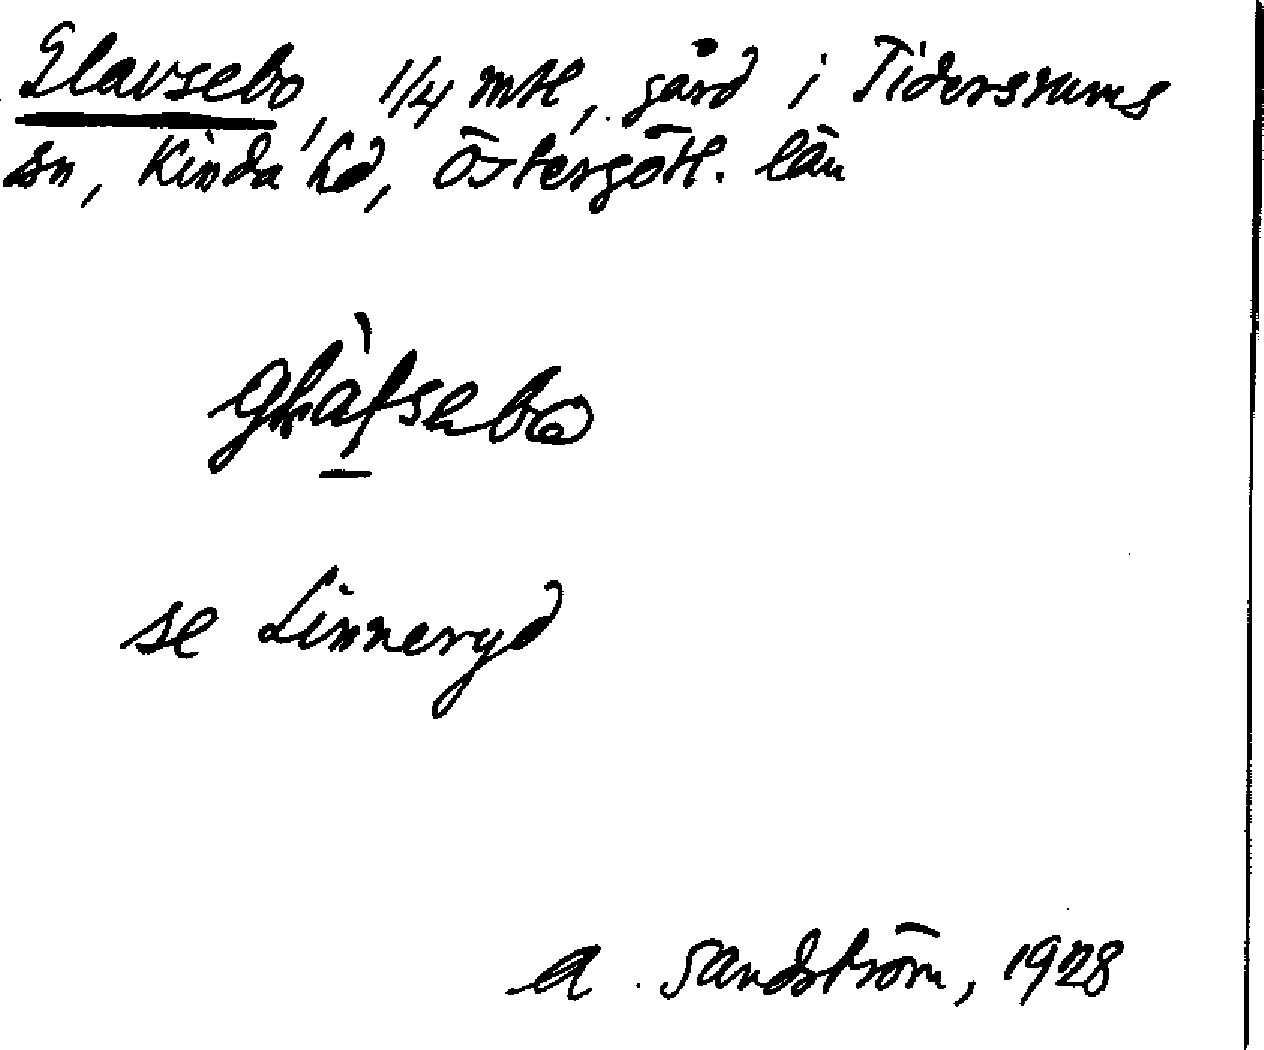 Glavsebo, 1/4 mtl, gård i Tidersrums
sn, Kinda hd, Östergötl. län
glàfsebo
se Linneryd
A. Sandström, 1928